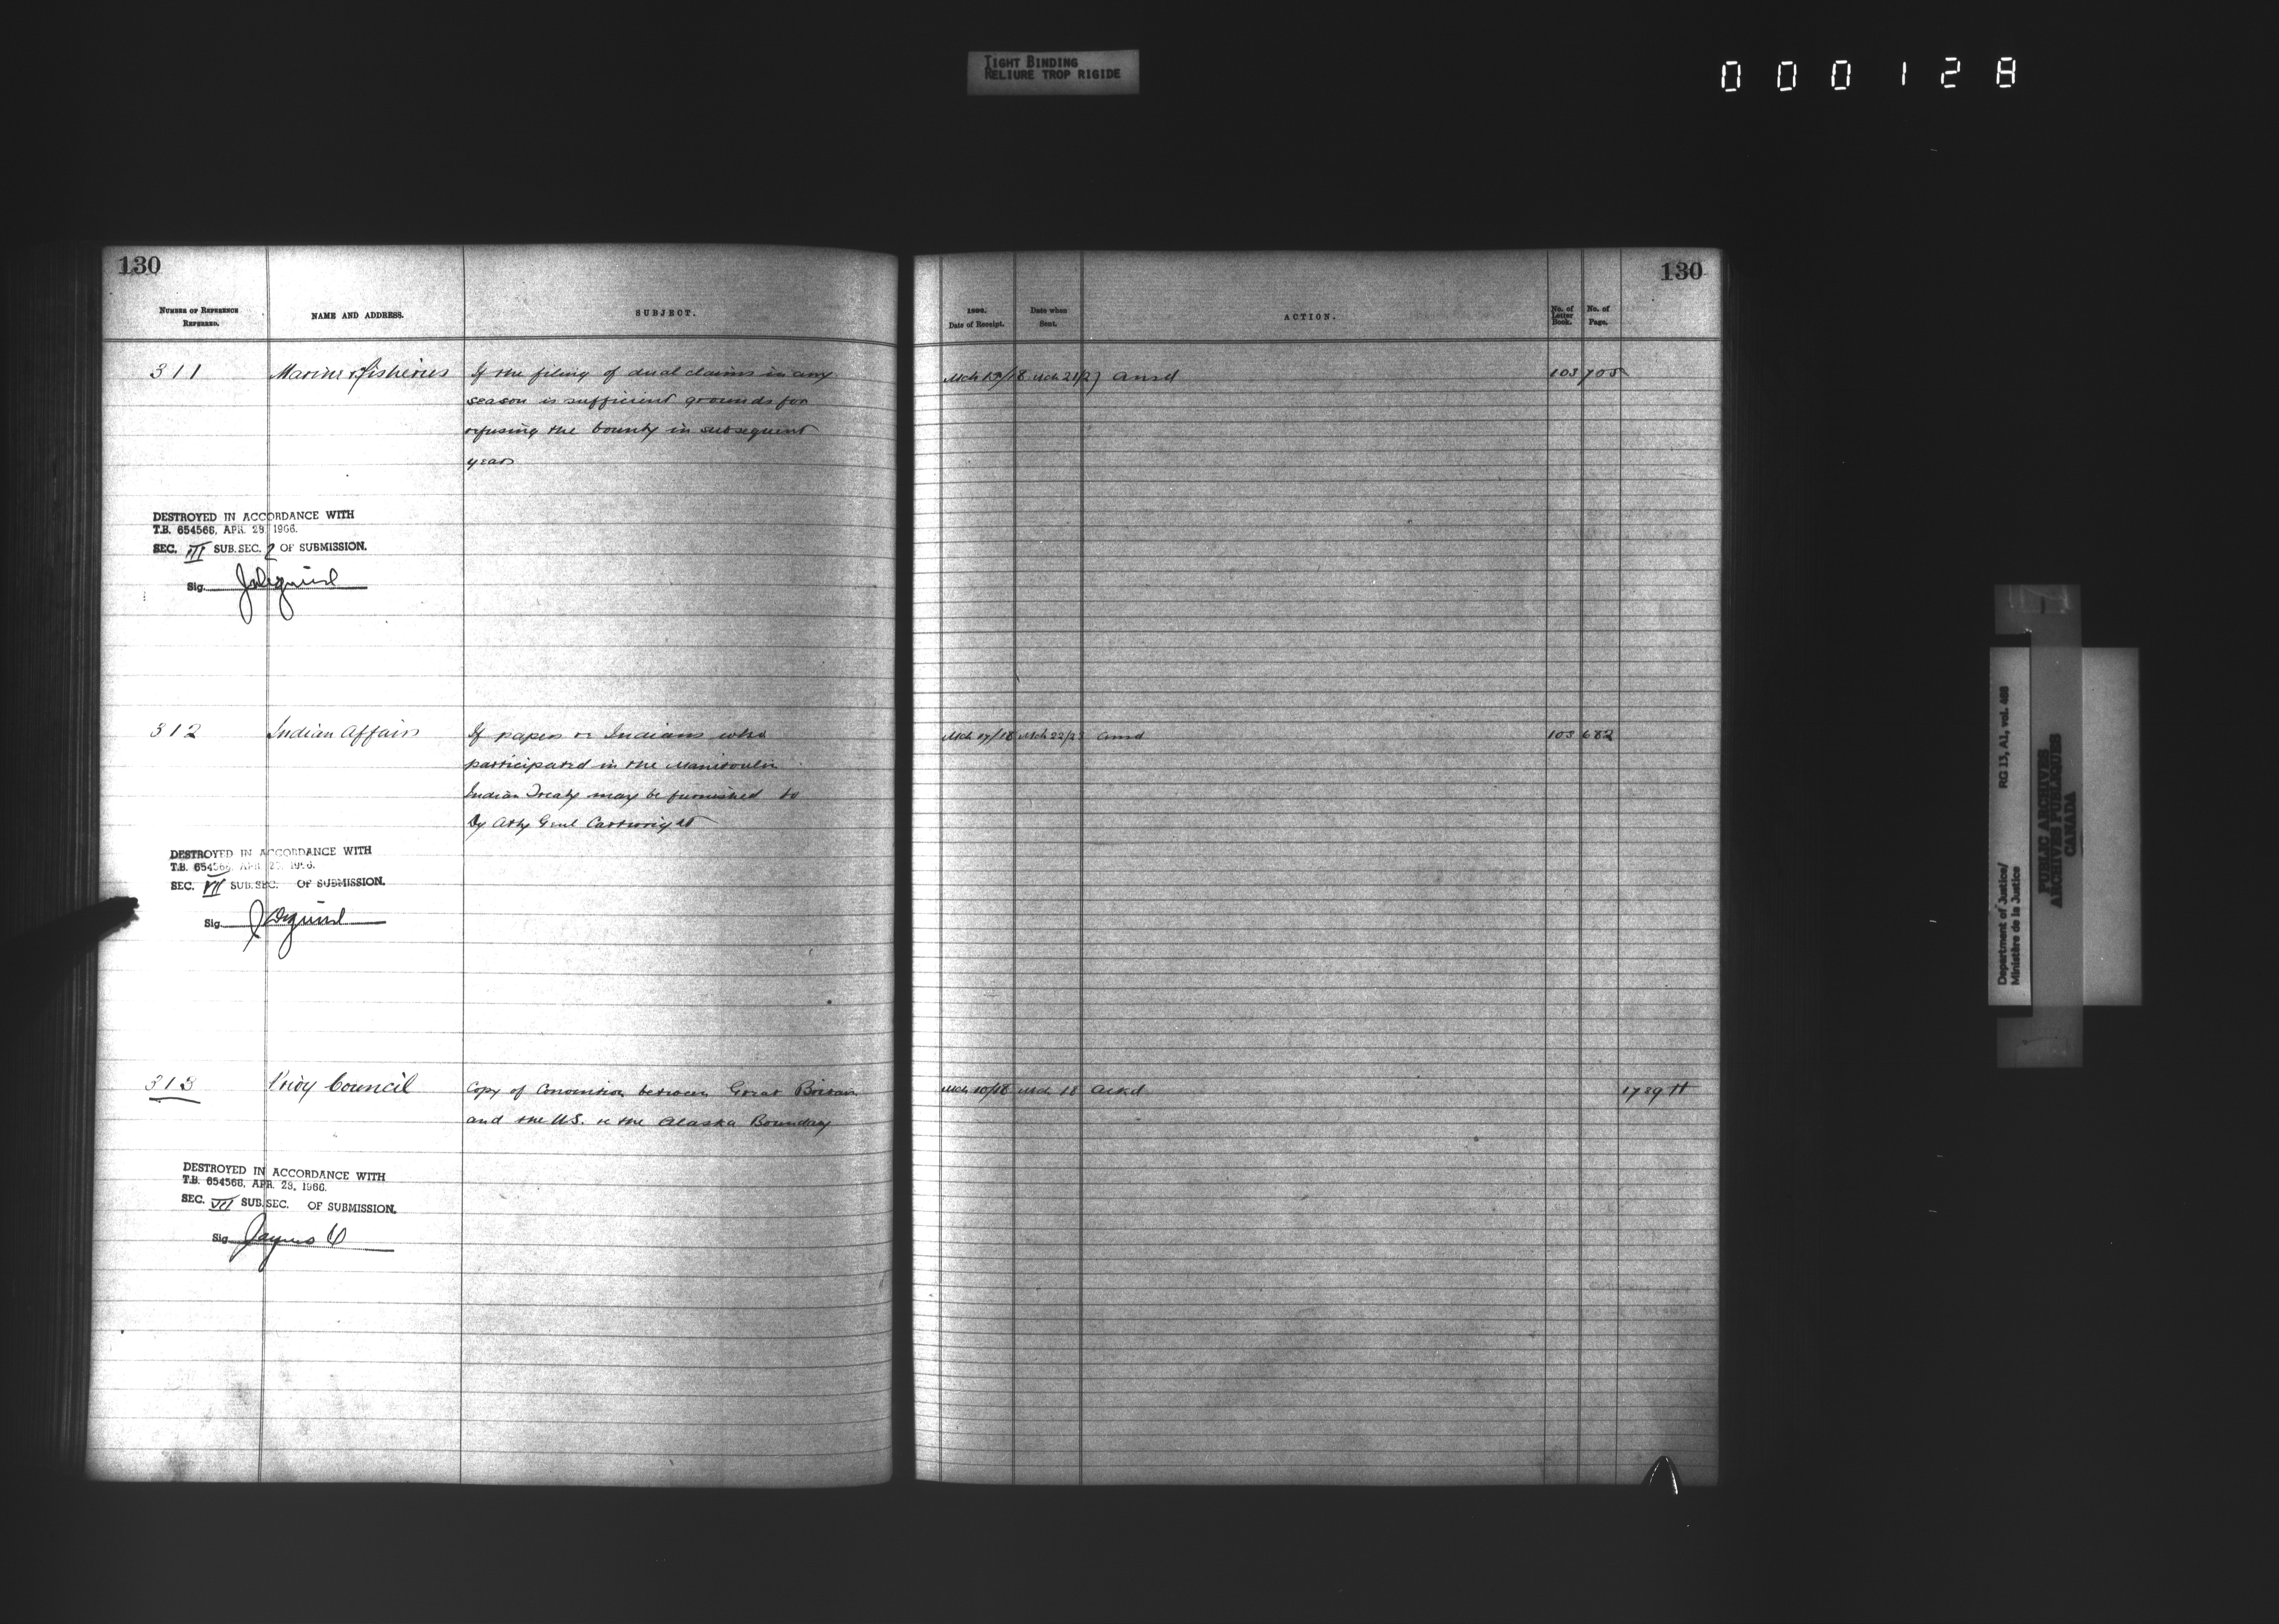 TIGHT BINDING
RELIURE TROP RIGIDE
000128
130
NUMBER OF REFERENCE
REFERRED.
NAME AND ADDRESS.
SUBJECT.
311
Marine & Fisheries
If the filing of dual claims in any
season is sufficient grounds for
refusing the bounty in subsequent
years
DESTROYED IN ACCORDANCE WITH
T.B. 654566, APR. 29, 1966.
SEC. III SUB.SEC. 2 OF SUBMISSION.
Sig.
312
Indian Affairs
If papers re Indians who
participated in the Manitoulin
Indian Treaty may be furnished to
Dy Atty Genl Cartwright
DESTROYED IN ACCORDANCE WITH
T.B. 654566, APR. 29, 1966.
SEC. VII SUB.SEC. OF SUBMISSION.
Sig.
313
Privy Council
Copy of Convention between Great Britain
and the U.S. re the Alaska Boundary
DESTROYED IN ACCORDANCE WITH
T.B. 654566, APR. 29, 1966.
SEC. VII SUB.SEC. OF SUBMISSION.
Sig.
130
Date of Receipt.
Date when
Sent.
ACTION.
No. of
Letter
Book.
No. of
Page.
Mch 13/18 Mch 21/23 Ansd 103 705
Mch 17/18 Mch 22/23 Ansd 103 682
Mch 10/18 Mch 18 Ackd 1789 H
Department of Justice/
Ministère de la Justice
RG 13, A1, vol. 488
PUBLIC ARCHIVES
ARCHIVES PUBLIQUES
CANADA